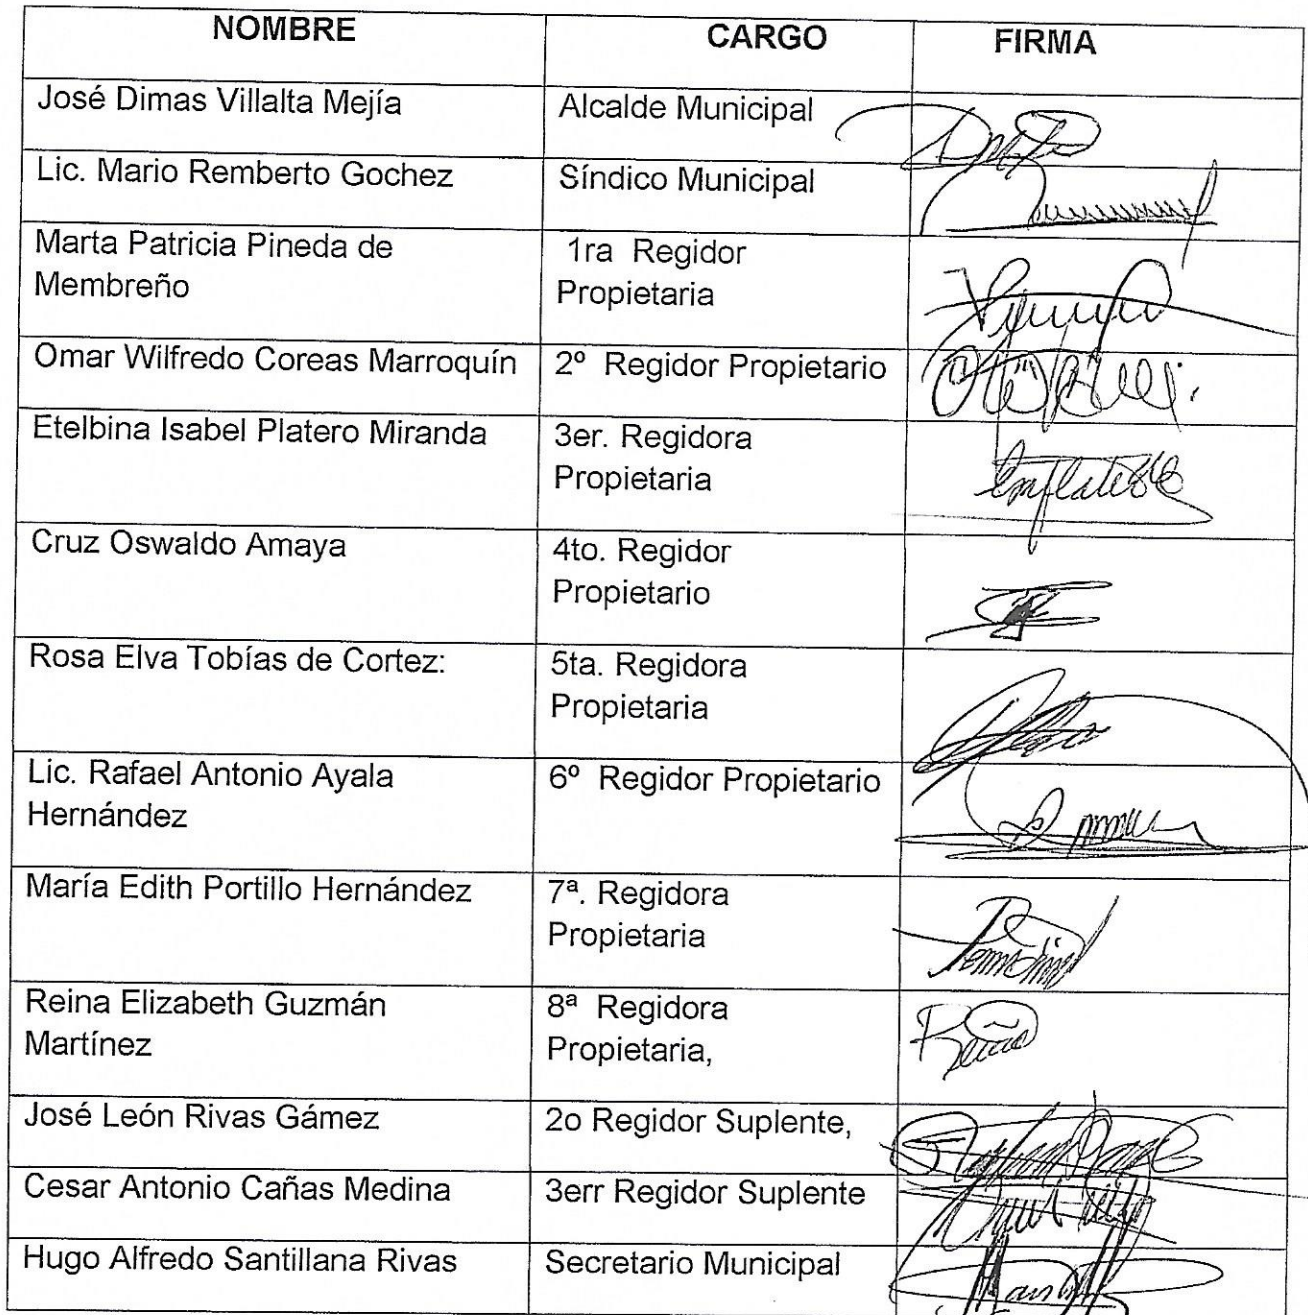 NOMBRE CARGO FIRMA
José Dimas Villalta Mejía Alcalde Municipal
Lic. Mario Remberto Gochez Síndico Municipal
Marta Patricia Pineda de 1ra Regidor
Membreño Propietaria
Omar Wilfredo Coreas Marroquín 2º Regidor Propietario
Etelbina Isabel Platero Miranda 3er. Regidora
Propietaria
Cruz Oswaldo Amaya 4to. Regidor
Propietario
Rosa Elva Tobías de Cortez: 5ta. Regidora
Propietaria
Lic. Rafael Antonio Ayala 6º Regidor Propietario
Hernández
María Edith Portillo Hernández 7ª. Regidora
Propietaria
Reina Elizabeth Guzmán 8ª Regidora
Martínez Propietaria,
José León Rivas Gámez 2o Regidor Suplente,
Cesar Antonio Cañas Medina 3err Regidor Suplente
Hugo Alfredo Santillana Rivas Secretario Municipal